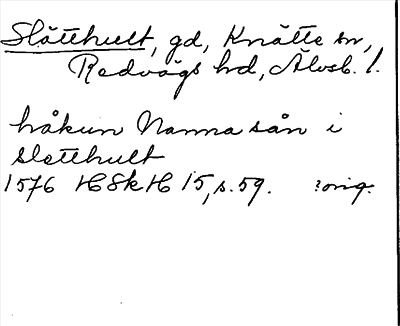 Slätthult, gd, Knätte sn,
Redvägs hd, Älvsb. l.
håkun Nanna sån i
sletthult
1576 HSkH 15, s. 59. ?orig.